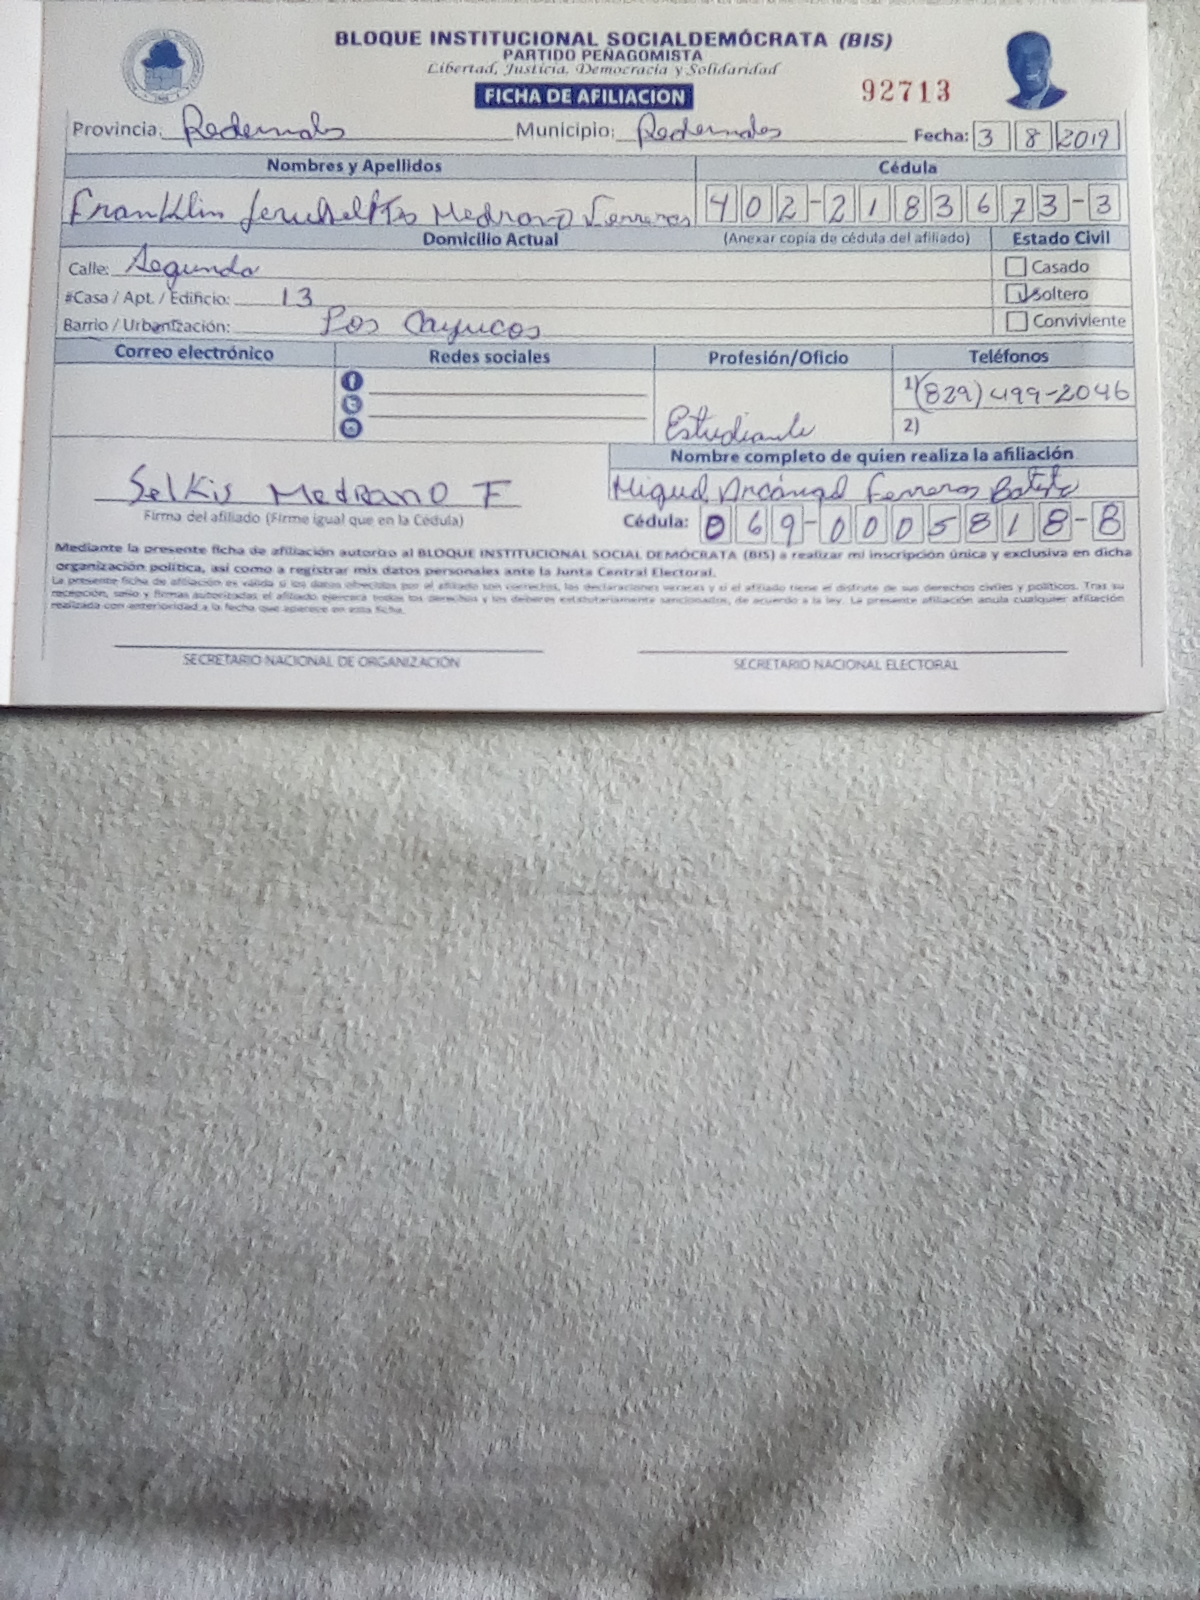 BLOQUE INSTITUCIONAL SOCIALDEMÓCRATA (BIS)
PARTIDO PEÑAGOMISTA
Libertad, Justicia, Democracia y Solidaridad
FICHA DE AFILIACION
92713
Provincia: Pedernales Municipio: Pedernales Fecha: 3 8 2019
Nombres y Apellidos Cédula
Franklin Medrano Ferreras 402-2183673-3
Domicilio Actual (Anexar copia de cédula del afiliado) Estado Civil
Calle: Segunda Casado
#Casa / Apt. / Edificio: 13 Soltero
Barrio / Urbanización: Los Cayucos Conviviente
Correo electrónico Redes sociales Profesión/Oficio Teléfonos
1) (829) 499-2046
Estudiante 2)
Nombre completo de quien realiza la afiliación
Selkis Medrano F Miguel Arcángel Ferreras Batista
Firma del afiliado (Firme igual que en la Cédula) Cédula: 069-0005818-8
Mediante la presente ficha de afiliación autorizo al BLOQUE INSTITUCIONAL SOCIAL DEMÓCRATA (BIS) a realizar mi inscripción única y exclusiva en dicha
organización política, así como a registrar mis datos personales ante la Junta Central Electoral.
La presente ficha de afiliación es válida si los datos ofrecidos por el afiliado son correctos, las declaraciones veraces y si el afiliado tiene el disfrute de sus derechos civiles y políticos. Tras su
recepción, sello y firmas autorizadas el afiliado ejercerá todos los derechos y los deberes estatutariamente sancionados, de acuerdo a la ley. La presente afiliación anula cualquier afiliación
realizada con anterioridad a la fecha que aparece en esta ficha.
SECRETARIO NACIONAL DE ORGANIZACIÓN SECRETARIO NACIONAL ELECTORAL